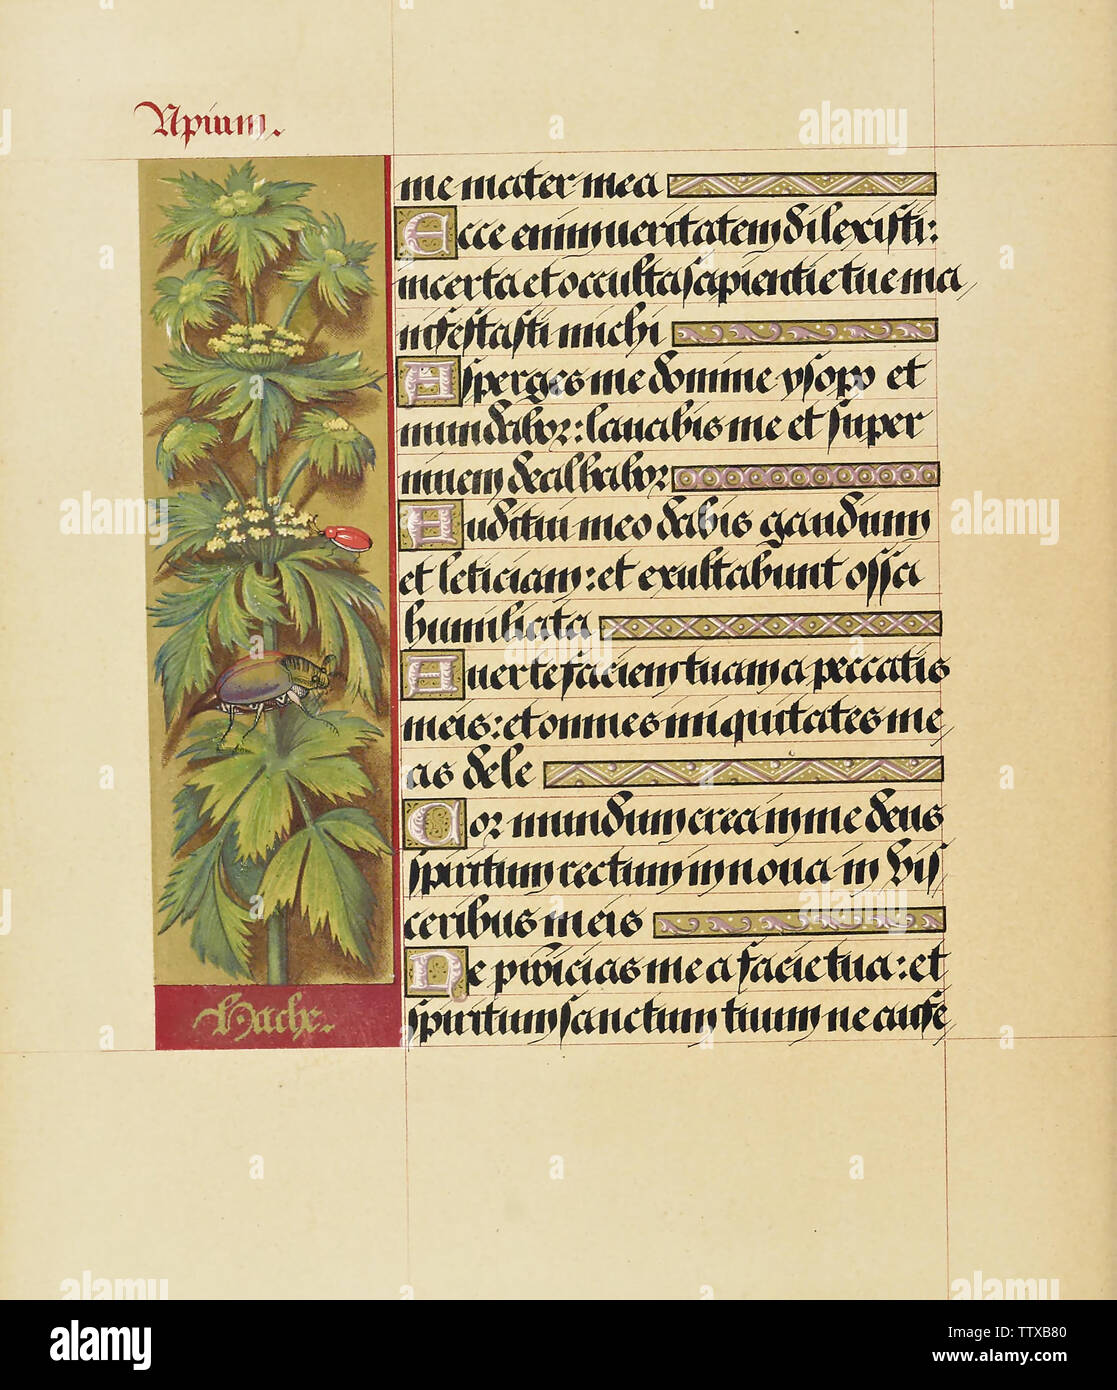 Apium.
me mater mea
Ecce enim veritatem dilexisti:
incerta et occulta sapientie tue ma
nifestasti michi
Asperges me domine ysopo et
mundabor: lavabis me et super
nivem dealbabor
Auditui meo dabis gaudium
et leticiam: et exultabunt ossa
humiliata
Averte faciem tuam a peccatis
meis: et omnes iniquitates me
as dele
Cor mundum crea in me deus
spiritum rectum innova in vis
ceribus meis
Ne proicias me a facie tua: et
spiritum sanctum tuum ne aufe
Hache.
alamy
a
alamy
Image ID: TTXB80
www.alamy.com